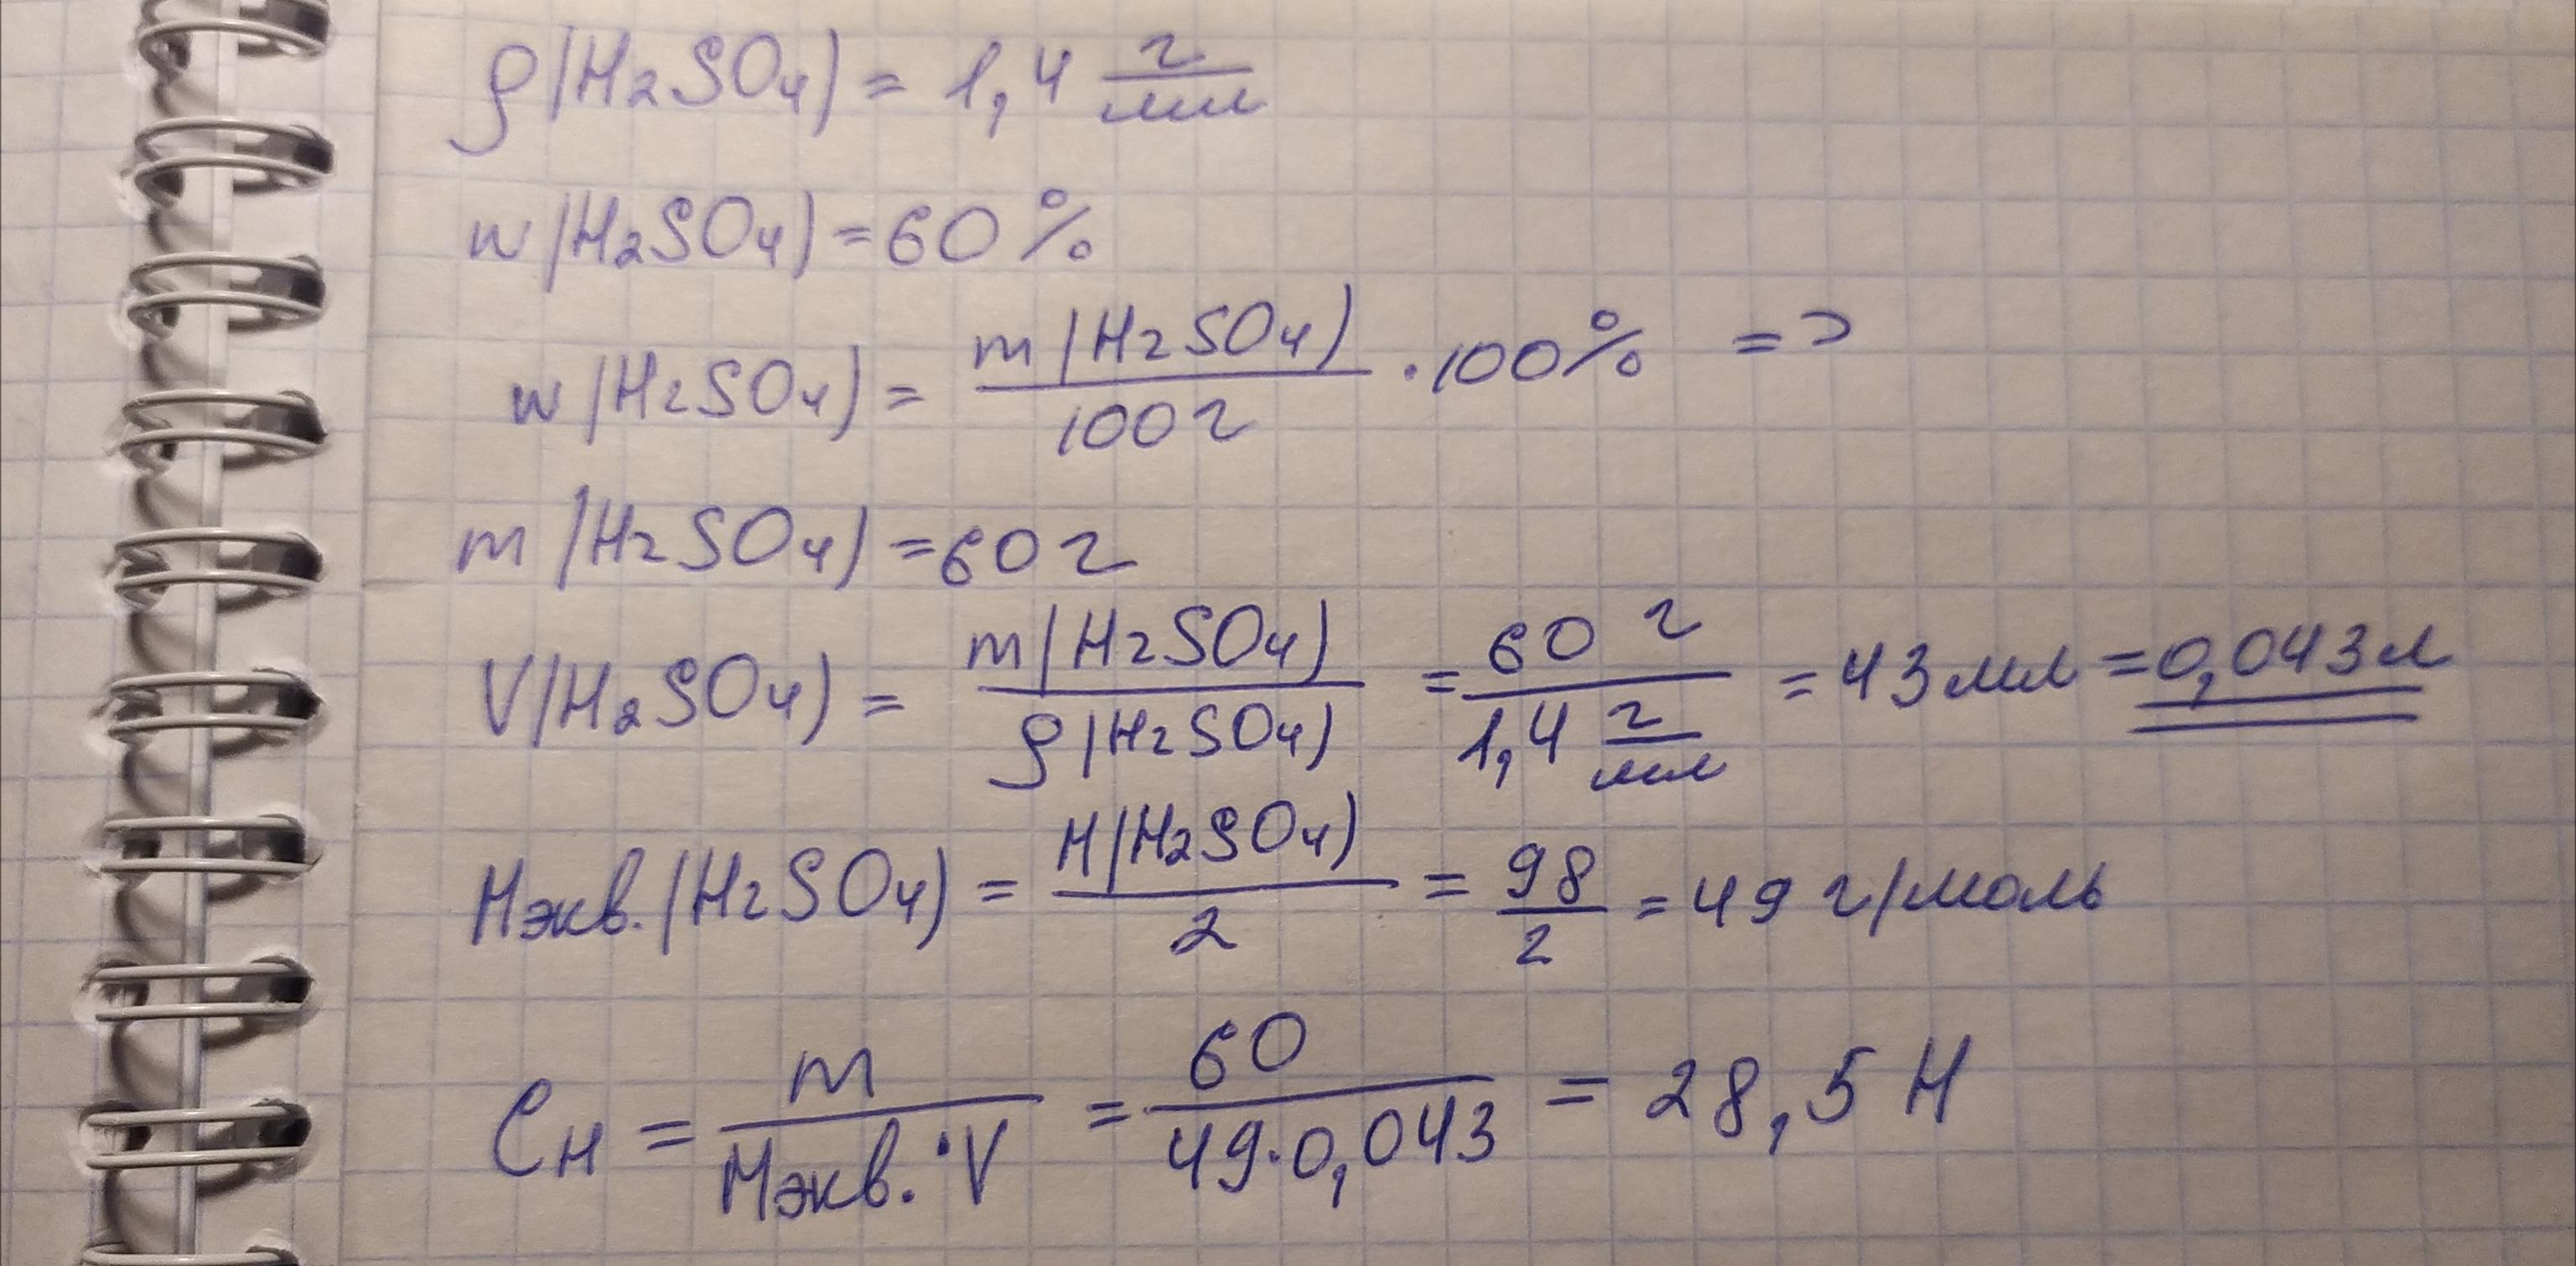 ρ(H₂SO₄) = 1,4 г/мл
w(H₂SO₄) = 60 %
w(H₂SO₄) = m(H₂SO₄)/100г · 100% =>
m(H₂SO₄) = 60 г
V(H₂SO₄) = m(H₂SO₄)/ρ(H₂SO₄) = 60 г/1,4 г/мл = 43 мл = 0,043 л
Mэкв.(H₂SO₄) = M(H₂SO₄)/2 = 98/2 = 49 г/моль
Cн = m/Mэкв.·V = 60/49·0,043 = 28,5 Н